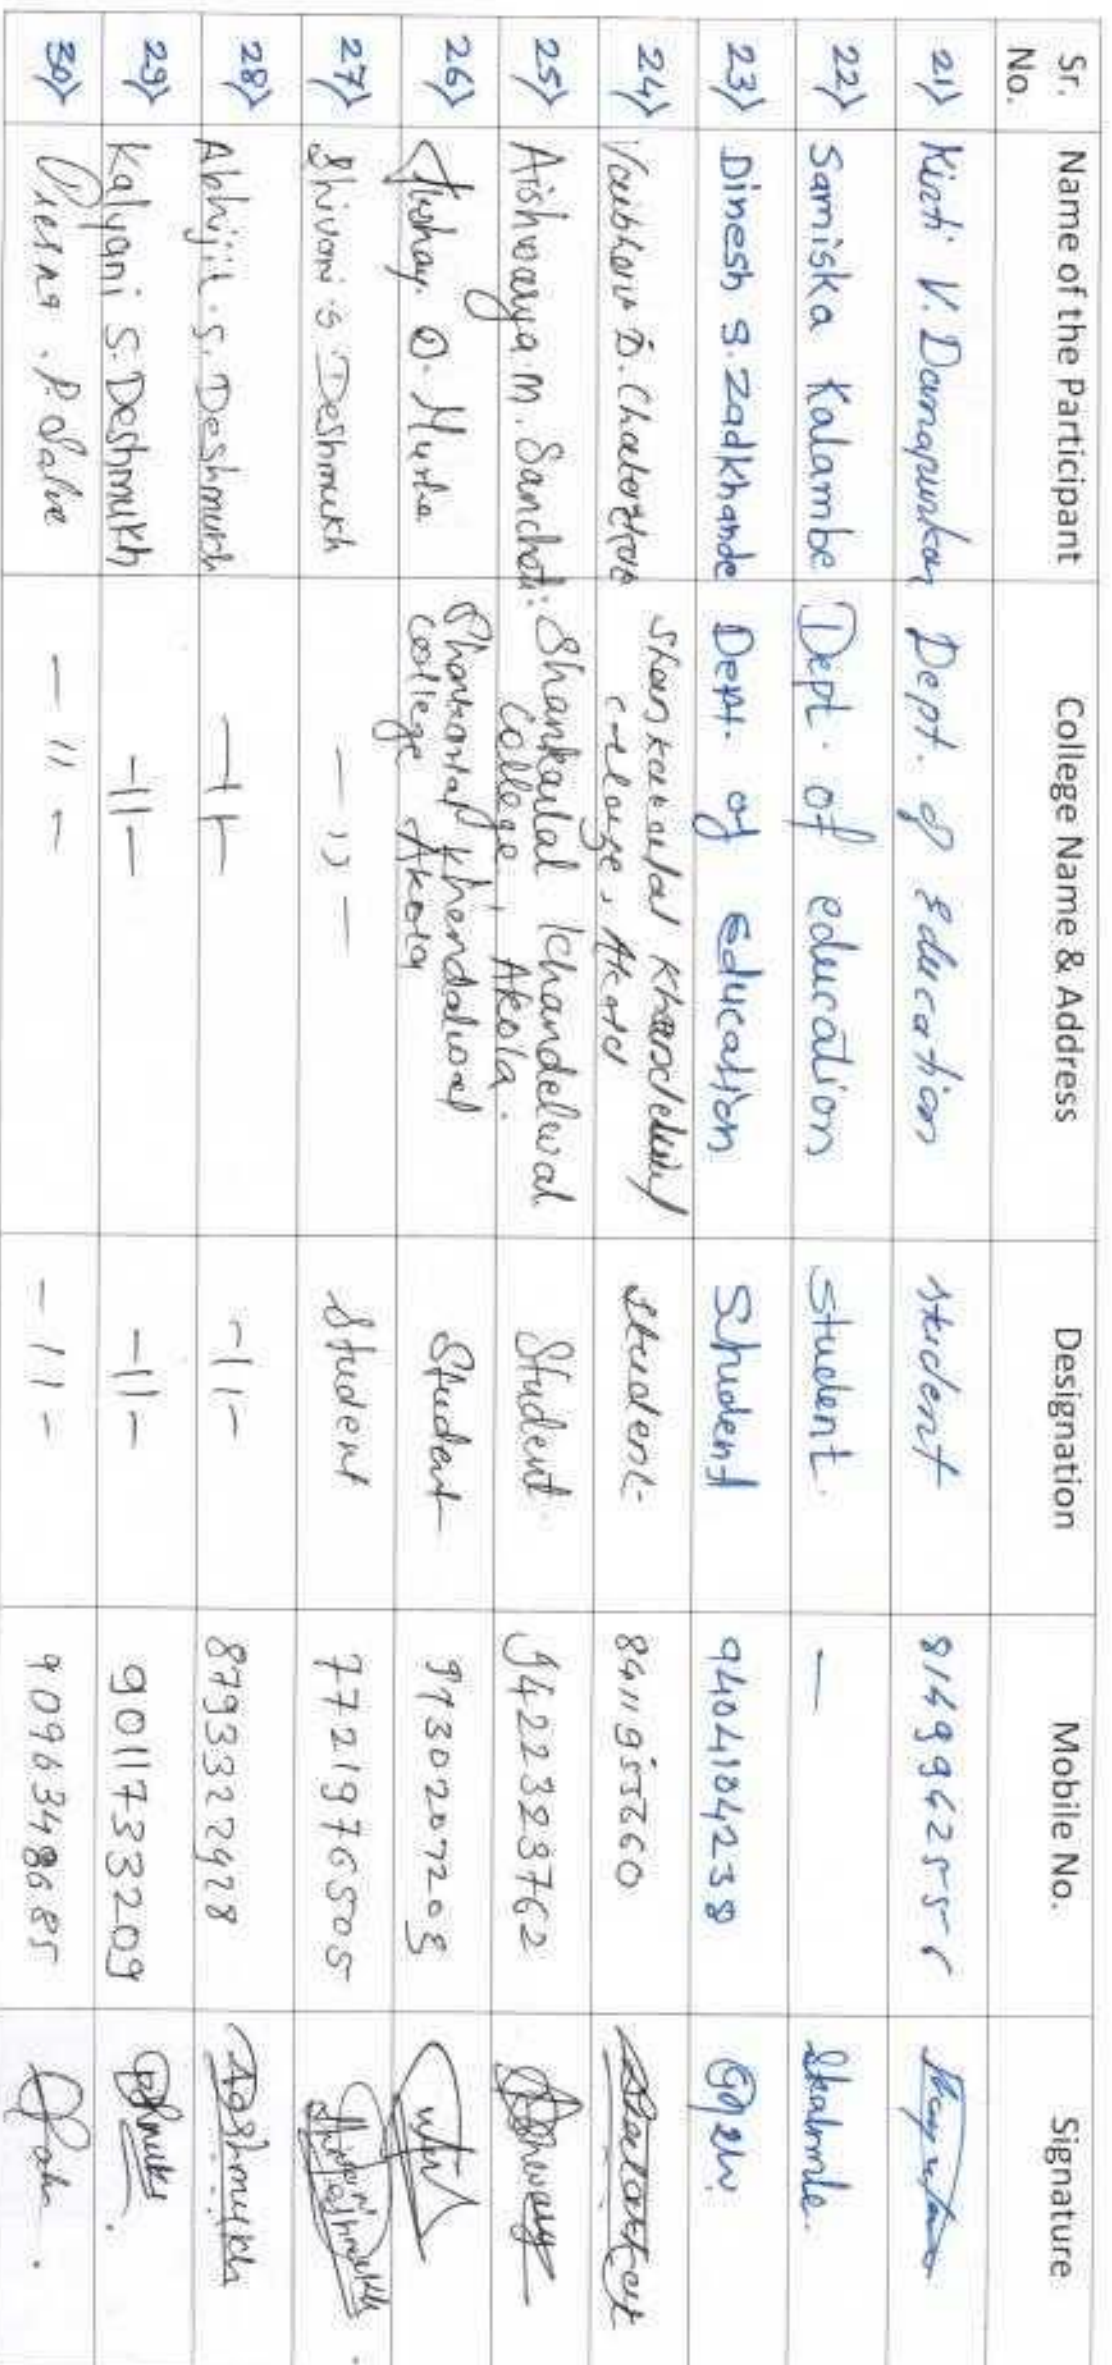 Sr. No. Name of the Participant College Name & Address Designation Mobile No. Signature
21) Kirti V. Damapurkar Dept. of Education student
22) Samiska Kalambe Dept. of education student. — Skalambe.
23) Dinesh S. Zadkhande Dept. of Education Student 9404104238
24) D. College, student
25) Aishwarya M. Sancheti. Shankarlal Khandelwal College, Akola. Student 9422323762
26) D. Shankarlal Khandelwal College Akola Student 9730207203
27) Shivani S Deshmukh — 11 — Student 7721976505 Shivani Deshmukh
28) Abhijit. S. Deshmukh — 11 — — 11 —
29) Kalyani S. Deshmukh — 11 — — 11 — 9011733209
30) Prerna . P. Salve — 11 — — 11 — 9096348685